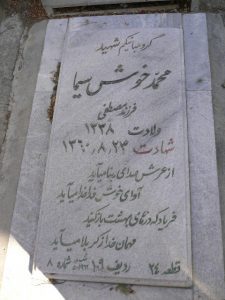 گروهبانیکم شهید
محمد خوش سیما
فرزند مصطفی
ولادت ۱۳۳۸
شهادت ۱۳۶۰٫۸٫۲۳
از عرش صدای ربنا میآید
آوای خوش خدا خدا میآید
فریاد که درهای بهشت باز کنید
مهمان خدا ز کربلا میآید
قطعه ۲۴ ردیف ۱۰۹ شماره ۸